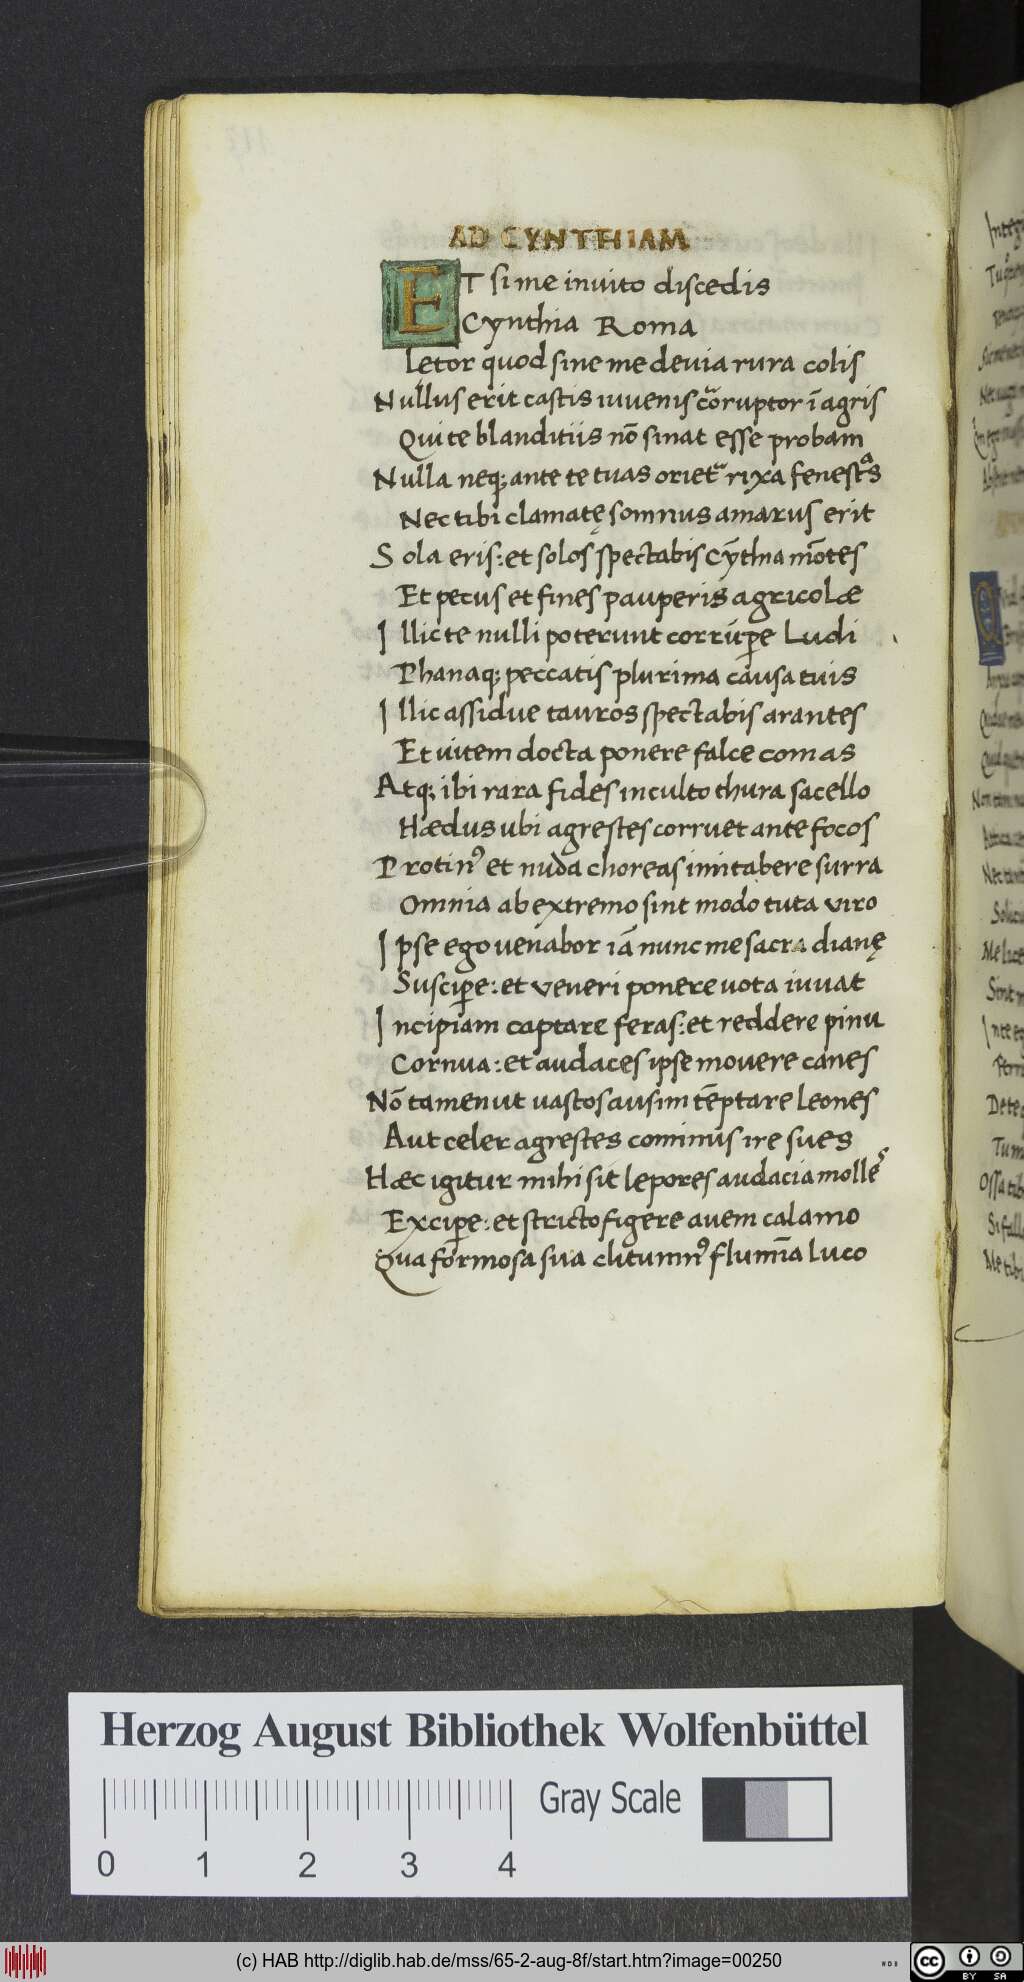 AD CYNTHIAM
ET si me inuito discedis
Cynthia Roma
Letor quod sine me deuia rura colis
Nullus erit castis iuuenis coruptor ī agris
Qui te blanditiis nō sinat esse probam
Nulla neq; ante te tuas oriet rixa fenestas
Nec tibi clamatę somnus amarus erit
Sola eris: et solos spectabis Cȳthia mōtes
Et pecus et fines pauperis agricolæ
Illic te nulli poterunt corrūpe Ludi
Phanaq; peccatis plurima causa tuis
Illic assidue tauros spectabis arantes
Et uitem docta ponere falce comas
Atq; ibi rara fides inculto thura sacello
Hædus ubi agrestes corruet ante focos
Protinꝰ et nuda choreas imitabere surra
Omnia ab extremo sint modo tuta viro
Ipse ego uenabor iā nunc me sacra dianę
Suscipe: et veneri ponere uota iuuat
Incipiam captare feras: et reddere pinu
Cornua: et audaces ipse mouere canes
Nō tamen ut uastos ausim tēptare leones
Aut celer agrestes cominus ire sues
Hæc igitur mihi sit lepores audacia molles
Excipe: et stricto figere auem calamo
Qua formosa sua clitumnꝰ flumīa luco
Herzog August Bibliothek Wolfenbüttel
Gray Scale
0 1 2 3 4
(c) HAB http://diglib.hab.de/mss/65-2-aug-8f/start.htm?image=00250
cc BY SA